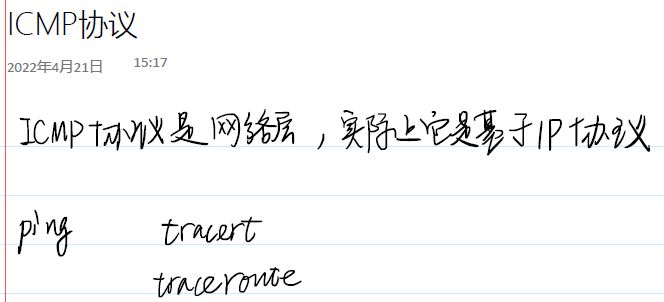 ICMP协议
2022年4月21日 15:17
ICMP协议是网络层，实际上它是基于IP协议
ping tracert
traceroute